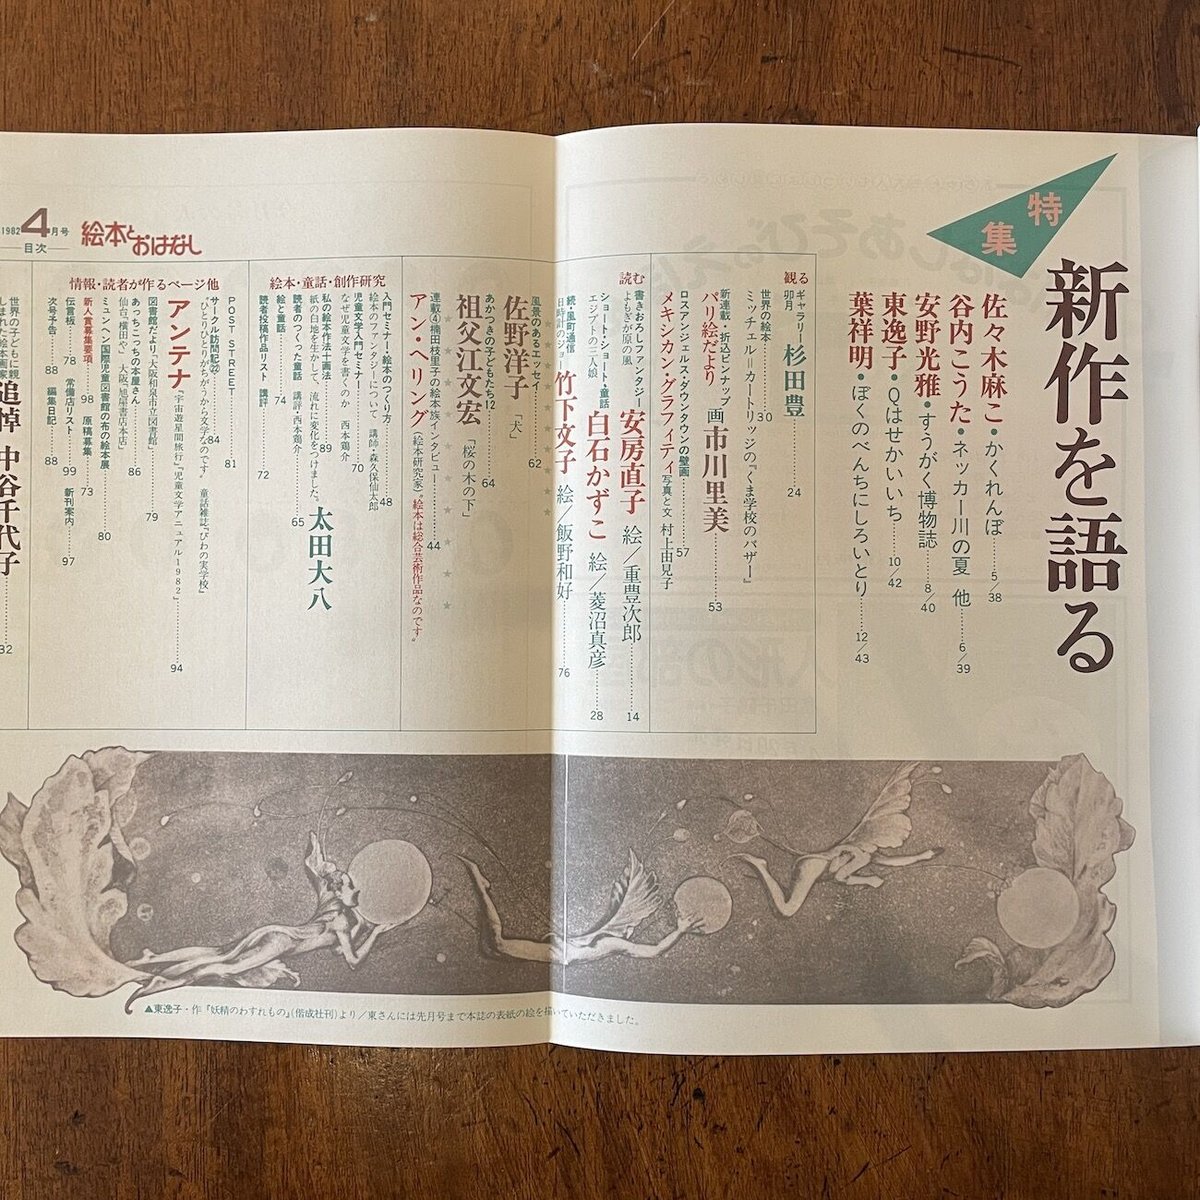 特集
新作を語る
佐々木麻こ・かくれんぼ……5/38
谷内こうた・ネッカー川の夏 他……6/39
安野光雅・すうがく博物誌……8/40
東逸子・Qはせかいいち……10/42
葉祥明・ぼくのべんちにしろいとり……12/43
観る
ギャラリー
卯月
杉田豊……24
世界の絵本
ミッチェル=カートリッジの『くま学校のバザー』……30
新連載・折込ピンナップ
パリ絵だより 画 市川里美……53
ロスアンジェルス・ダウンタウンの壁画……57
メキシカン・グラフィティ 写真と文 村上由見子
読む
書きおろしファンタジー
よもぎが原の風
安房直子 絵/重豊次郎……14
ショート・ショート・童話
エジプトの三人娘
白石かずこ 絵/菱沼真彦……28
続・風町通信
日時計のジョー
竹下文子 絵/飯野和好……76
風景のあるエッセイ……62
佐野洋子「犬」
あかつきの子どもたち12……64
祖父江文宏「桜の木の下」
連載④楠田枝里子の絵本族インタビュー……44
アン・ヘリング(絵本研究家)“絵本は総合芸術作品なのです”
絵本・童話・創作研究
入門セミナー/絵本のつくり方……48
絵本のファンタジーについて 講師・森久保仙太郎
児童文学入門セミナー……70
なぜ児童文学を書くのか 西本鶏介
私の絵本作法十画法……89
紙の白地を生かして、流れに変化をつけました。 太田大八
読者のつくった童話 講評・西本鶏介……65
絵と童話……74
読者投稿作品リスト 講評……72
情報・読者が作るページ他
POST STREET……81
サークル訪問記㉒……84
“ひとりひとりがちがうから文学なのです” 童話雑誌『びわの実学校』
アンテナ「宇宙遊星間旅行」『児童文学アニュアル1982』……94
図書館だより「大阪和泉市立図書館」……79
あっちこっちの本屋さん……86
仙台「横田や」大阪「旭屋書店本店」
ミュンヘン国際児童図書館の布の絵本展……80
新人賞募集要項……98 原稿募集……73
伝言板……78 常備店リスト……99 新刊案内……97
次号予告……88 編集日記……88
追悼 中谷千代子……32
1982 4月号
目次
絵本とおはなし
▲東逸子・作『妖精のわすれもの』(偕成社刊)より/東さんには先月号まで本誌の表紙の絵を描いていただきました。